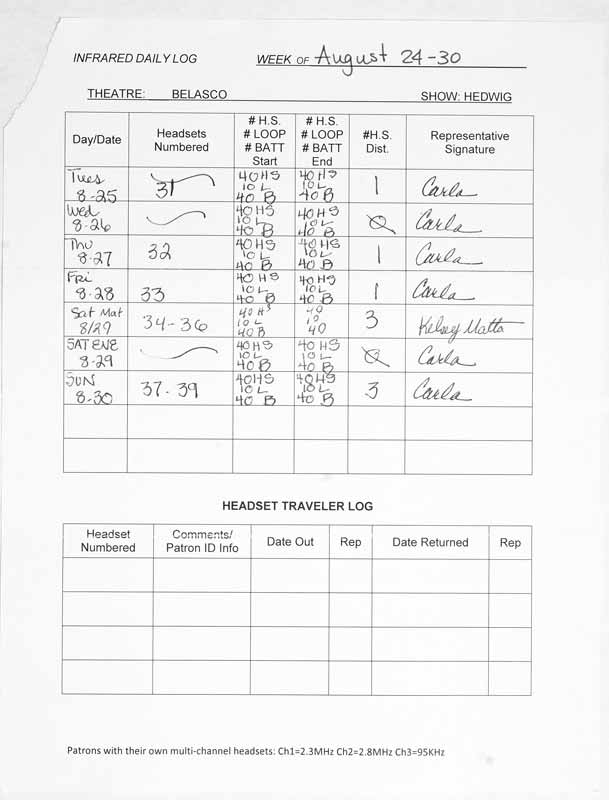 INFRARED DAILY LOG WEEK OF August 24-30
THEATRE: BELASCO SHOW: HEDWIG
Day/Date Headsets Numbered # H.S. # LOOP # BATT Start # H.S. # LOOP # BATT End #H.S. Dist. Representative Signature
Tues 8-25 31 40 HS 10 L 40 B 40 HS 10 L 40 B 1 Carla
Wed 8-26 40 HS 10 L 40 B 40 HS 10 L 40 B 0 Carla
Thu 8-27 32 40 HS 10 L 40 B 40 HS 10 L 40 B 1 Carla
Fri 8-28 33 40 HS 10 L 40 B 40 HS 10 L 40 B 1 Carla
Sat Mat 8/29 34-36 40 HS 10 L 40 B 40 10 40 3 Kelsey Matta
SAT EVE 8-29 40 HS 10 L 40 B 40 HS 10 L 40 B 0 Carla
SUN 8-30 37-39 40 HS 10 L 40 B 40 HS 10 L 40 B 3 Carla
HEADSET TRAVELER LOG
Headset Numbered Comments/ Patron ID Info Date Out Rep Date Returned Rep
Patrons with their own multi-channel headsets: Ch1=2.3MHz Ch2=2.8MHz Ch3=95KHz